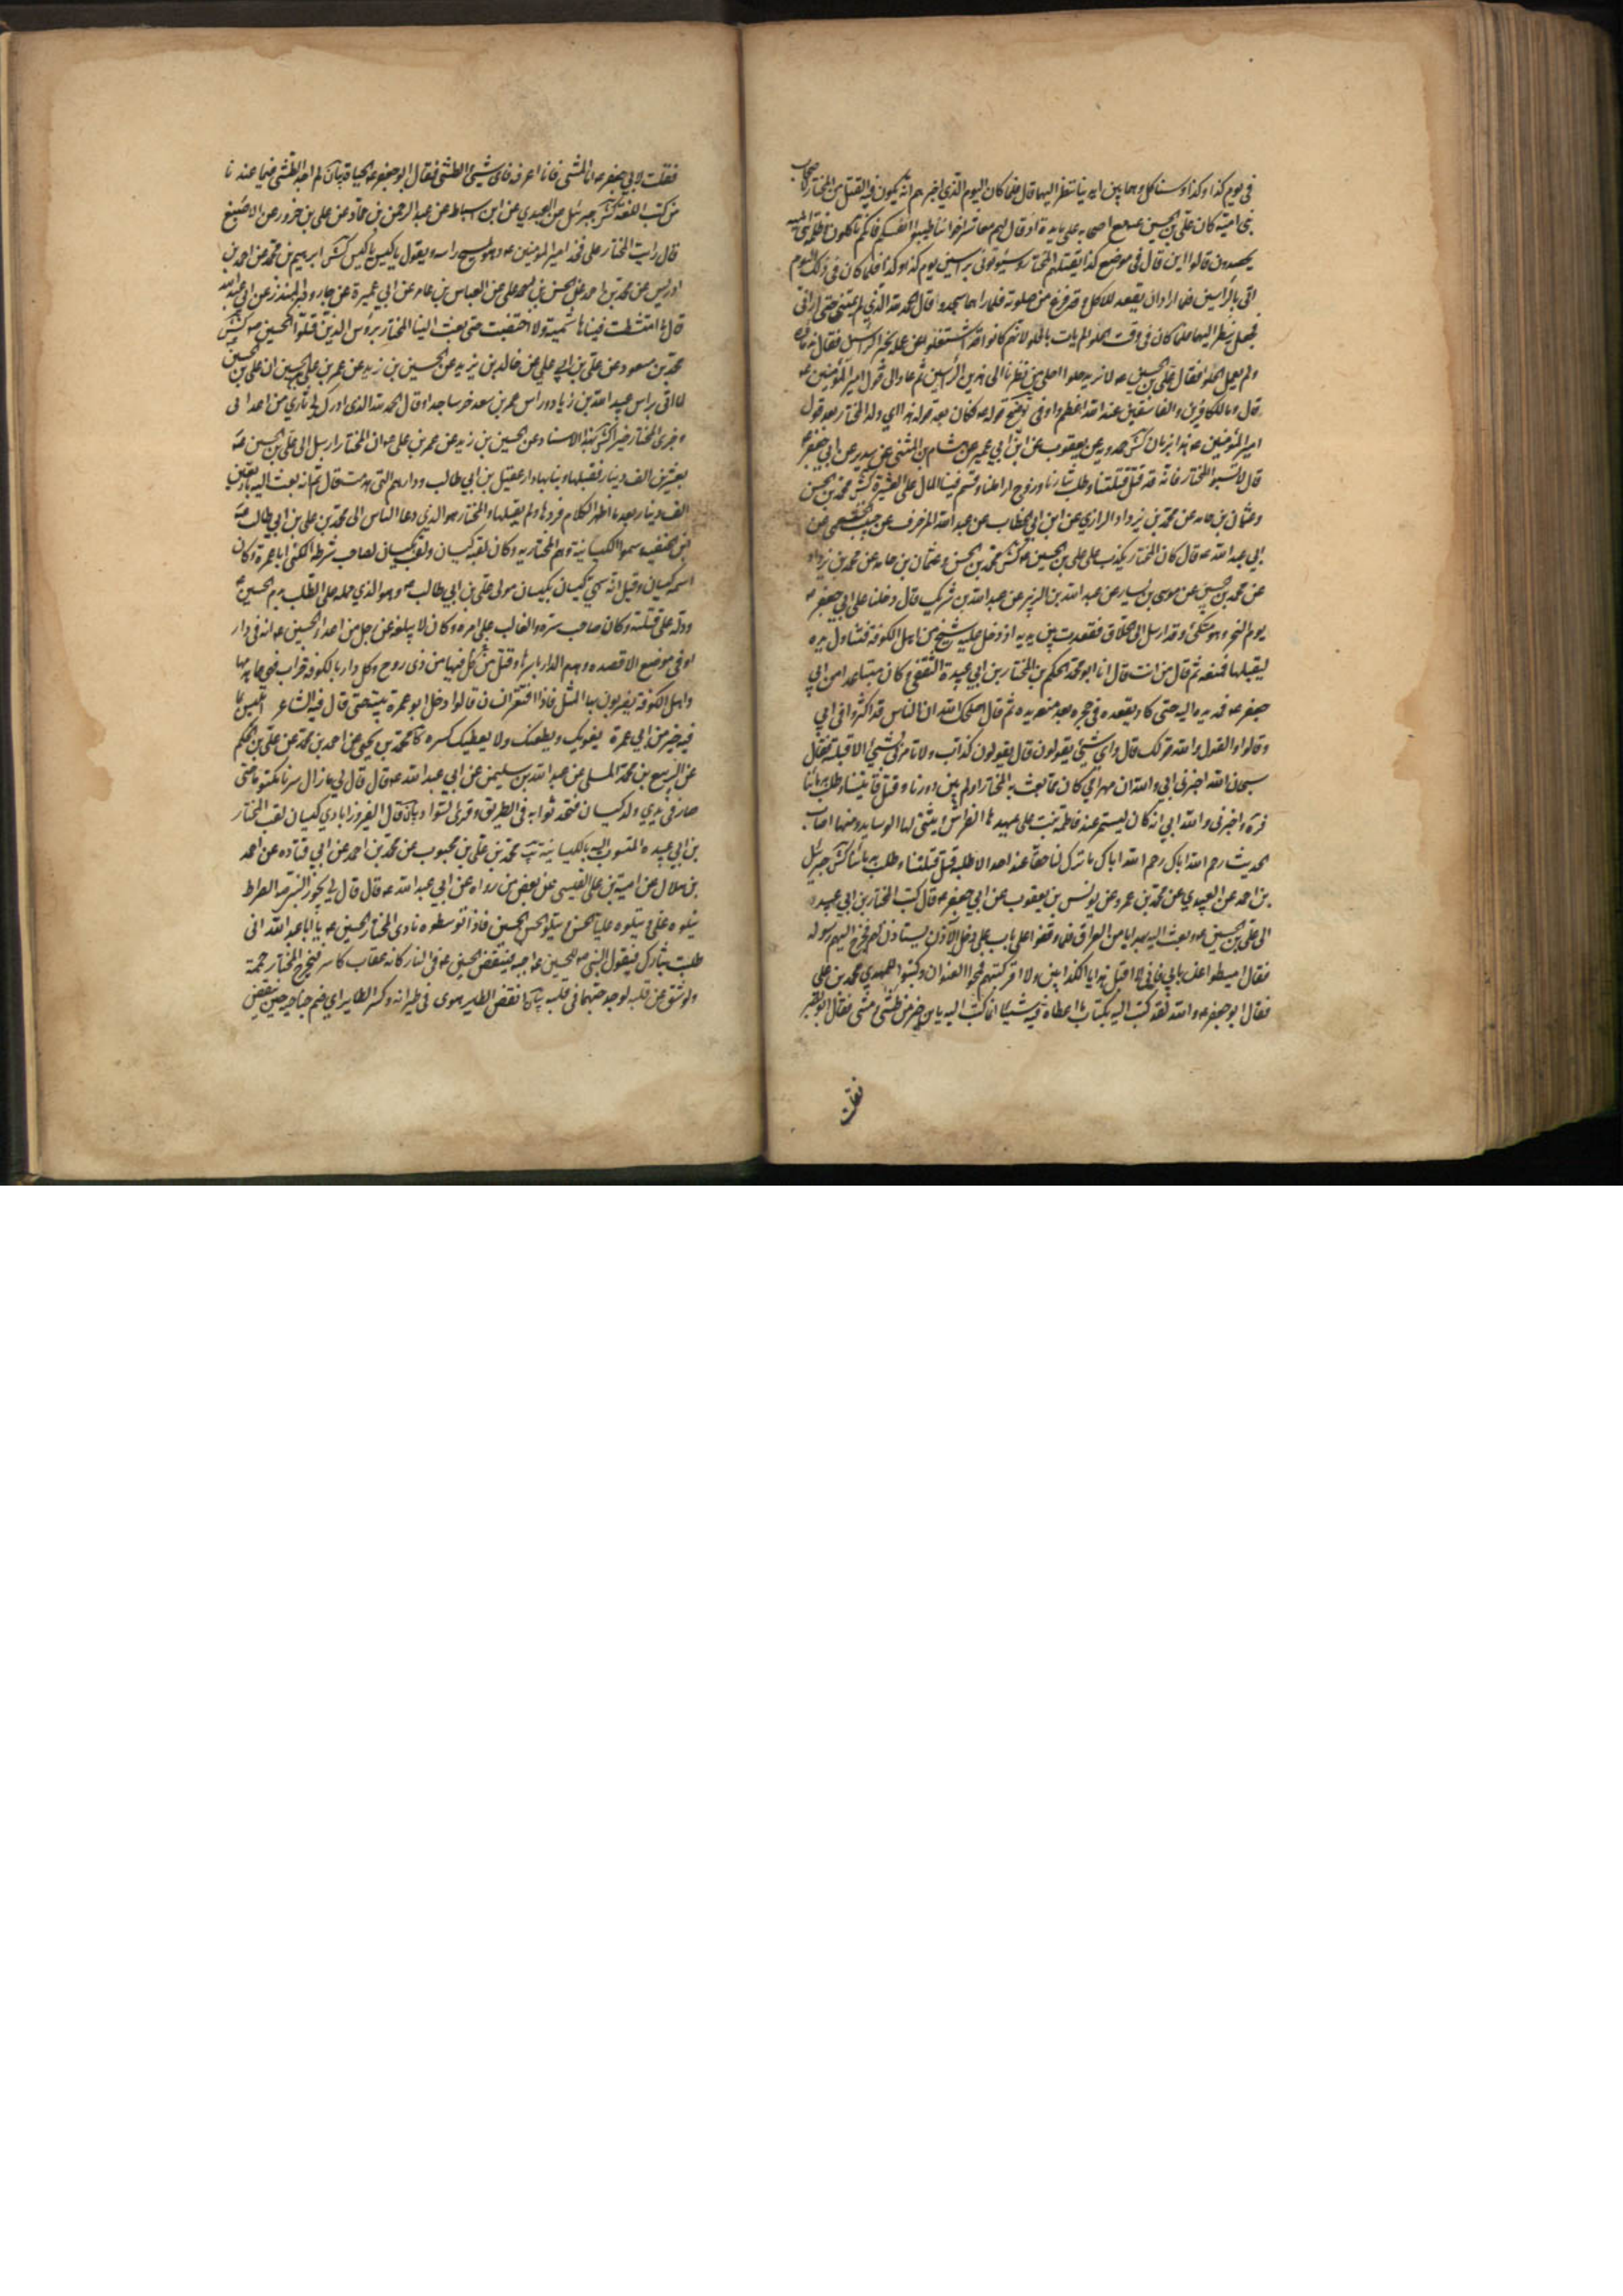 في يوم كذا وكذا وسناكل وهما بين ايدينا ننظر اليهما قال فلما كان اليوم الذي اخبرهم انه يكون فيه القتل من المختار لاصحاب
بني امية كان علي بن الحسين ع مع اصحابه على مايدة اذ قال لهم معاشر اخواننا طيبوا انفسكم فانكم تاكلون وظلمة بني امية
يحصدون قالوا اين قال في موضع كذا يقتلهم المختار وسيؤتونى براسين يوم كذا وكذا فلما كان في ذلك اليوم
اتى بالراسين لما اراد ان يقعد للاكل وقد فرغ من صلوته فلما راهما سجد وقال الحمد لله الذي لم يمتني حتى اراني
فجعل ينظر اليهما فلما كان في وقت الحلو لم يات بالحلو لانهم كانوا قد اشتغلوا عن عمله بخبر الراسين فقال ندماؤه
ولم يعمل الحلو فقال علي بن الحسين ع لا نريد حلوا احلى من نظرنا الى هذين الراسين ثم عاد الى قول امير المؤمنين ع
قال وما للكافرين والفاسقين عند الله اعظم واوفى توضيح قوله فكان بعد قوله هذا اي ولد المختار بعد قول
امير المؤمنين ع هذا بزمان كش حمدويه عن يعقوب عن ابن ابي عمير عن هشام بن المثنى عن سدير عن ابي جعفر ع
قال لا تسبوا المختار فانه قد قتل قتلتنا وطلب بثارنا وزوج اراملنا وقسم فينا المال على العسرة كش محمد بن الحسن
وعثمان بن حامد عن محمد بن يزداد الرازي عن ابن ابي الخطاب عن عبد الله المزخرف عن حبيب الخثعمي عن
ابي عبد الله ع قال كان المختار يكذب على علي بن الحسين ع كش محمد بن الحسن وعثمان بن حامد عن محمد بن يزداد
عن محمد بن الحسين عن موسى بن يسار عن عبد الله بن الزبير عن عبد الله بن شريك قال دخلنا على ابي جعفر ع
يوم النحر وهو متكئ وقد ارسل الى الحلاق فقعدت بين يديه اذ دخل عليه شيخ من اهل الكوفة فتناول يده
ليقبلها فمنعه ثم قال من انت قال انا ابو محمد الحكم بن المختار بن ابي عبيدة الثقفي وكان متباعدا من ابي
جعفر ع فمد يده اليه حتى كاد يقعده في حجره بعد منعه يده ثم قال اصلحك الله ان الناس قد اكثروا في ابي
وقالوا والقول والله قولك قال واي شيئ يقولون قال يقولون كذاب ولا تامرني بشيئ الا قبلته فقال
سبحان الله اخبرني ابي والله ان مهر امي كان مما بعث به المختار اولم يبن دورنا وقتل قاتلينا وطلب بدمائنا
فرحمه واخبرني والله ابي انه كان ليسمر عند فاطمة بنت علي يمهدها الفراش ويثني لها الوسايد ومنها اصاب
الحديث رحم الله اباك رحم الله اباك ما ترك لنا حقا عند احد الا طلبه قتل قتلتنا وطلب بدمائنا كش جبرئيل
بن احمد عن العبيدي عن محمد بن عمرو عن يونس بن يعقوب عن ابي جعفر ع قال كتب المختار بن ابي عبيدة
الى علي بن الحسين ع وبعث اليه بهدايا من العراق فلما وقفوا على باب علي دخل الآذن يستاذن لهم فخرج اليهم رسوله
فقال اميطوا عن بابي فاني لا اقبل هدايا الكذابين ولا اقرأ كتبهم فمحوا العنوان وكتبوا المهدي محمد بن علي
فقال ابو جعفر ع والله لقد كتب اليه بكتاب ما اعطاه فيه شيئا انما كتب اليه يا ابن خير من طشى ومشى فقال ابو بصير
فقلت
فقلت لابي جعفر ع اما المشي فانا اعرفه فاي شيئ الطشي فقال ابو جعفر ع الحياة بيان لم اجد الطشي فيما عندنا
من كتب اللغة كش جبرئيل عن العبيدي عن ابن اسباط عن عبد الرحمن بن حماد عن علي بن حزور عن الاصبغ
قال رايت المختار على فخذ امير المؤمنين ع وهو يمسح راسه ويقول ياكيس ياكيس كش ابرهيم بن محمد عن احمد بن
ادريس عن محمد بن احمد عن الحسن بن علي عن العباس بن عامر عن ابي عميرة عن جارود بن المنذر عن ابي عبد الله
قال ما امتشطت فينا هاشمية ولا اختضبت حتى بعث الينا المختار برؤس الذين قتلوا الحسين ع كش
محمد بن مسعود عن علي بن ابي علي عن خالد بن يزيد عن الحسين بن زيد عن عمر بن علي بن الحسين ان علي بن الحسين
لما اتي براس عبيد الله بن زياد وراس عمر بن سعد خر ساجدا وقال الحمد لله الذي ادرك لي ثاري من اعدائي
وجزى المختار خيرا كش بهذا الاسناد عن الحسين بن زيد عن عمر بن علي ع ان المختار ارسل الى علي بن الحسين ع
بعشرين الف دينار فقبلها وبنا بها دار عقيل بن ابي طالب ودارهم التي هدمت قال ثم انه بعث اليه باربعين
الف دينار بعد ما اظهر الكلام فردها ولم يقبلها والمختار هو الذي دعا الناس الى محمد بن علي بن ابي طالب ع
ابن الحنفيه وسموا الكيسانية وهم المختاريه وكان لقبه كيسان ولقب بكيسان لصاحب شرطه المكنى ابا عمرة وكان
اسمه كيسان وقيل انه سمي كيسان بكيسان مولى علي بن ابي طالب ع وهو الذي حمله على الطلب بدم الحسين ع
ودله على قتلته وكان صاحب سره والغالب على امره وكان لا يبلغه عن رجل من اعداء الحسين ع انه في دار
او في موضع الا قصده وهدم الدار باسرها وقتل من كل فيها من ذي روح وكل دار بالكوفة خراب فهي مما هدمها
واهل الكوفة يضربون بها المثل فاذا افتقر انسان قالوا دخل ابو عمرة بيته حتى قال فيه الشاعر ابليس بما
فيه خير من ابي عمرة يغويك ويطغيك ولا يعطيك كسره كا محمد بن يحيى عن احمد بن محمد عن علي بن الحكم
عن الربيع بن محمد المسلي عن عبد الله بن سليمن عن ابي عبد الله ع قال قال لي ما زال سرنا مكتوما حتى
صار في يدي ولد كيسان فتحدثوا به في الطريق وقرى السواد بيان قال الفيروزابادي كيسان لقب المختار
بن ابي عبيده المنسوب اليه الكيسانية يب محمد بن علي بن محبوب عن محمد بن احمد عن ابي قتاده عن احمد
بن هلال عن امية بن علي القيسي عن بعض من رواه عن ابي عبد الله ع قال قال لي يجوز النبي ص الصراط
يتلوه علي ويتلو عليا الحسن ويتلو الحسن الحسين فاذا توسطوه نادى المختار الحسين ع يا ابا عبد الله اني
طلبت بثارك فيقول النبي ص للحسين ع اجبه فينقض الحسين ع في النار كانه عقاب كاسر فيخرج المختار حممة
ولو شق عن قلبه لوجد حبهما في قلبه بيان انقض الطير هوى في طيرانه وكسر الطاير اي ضم جناحيه حين ينقض